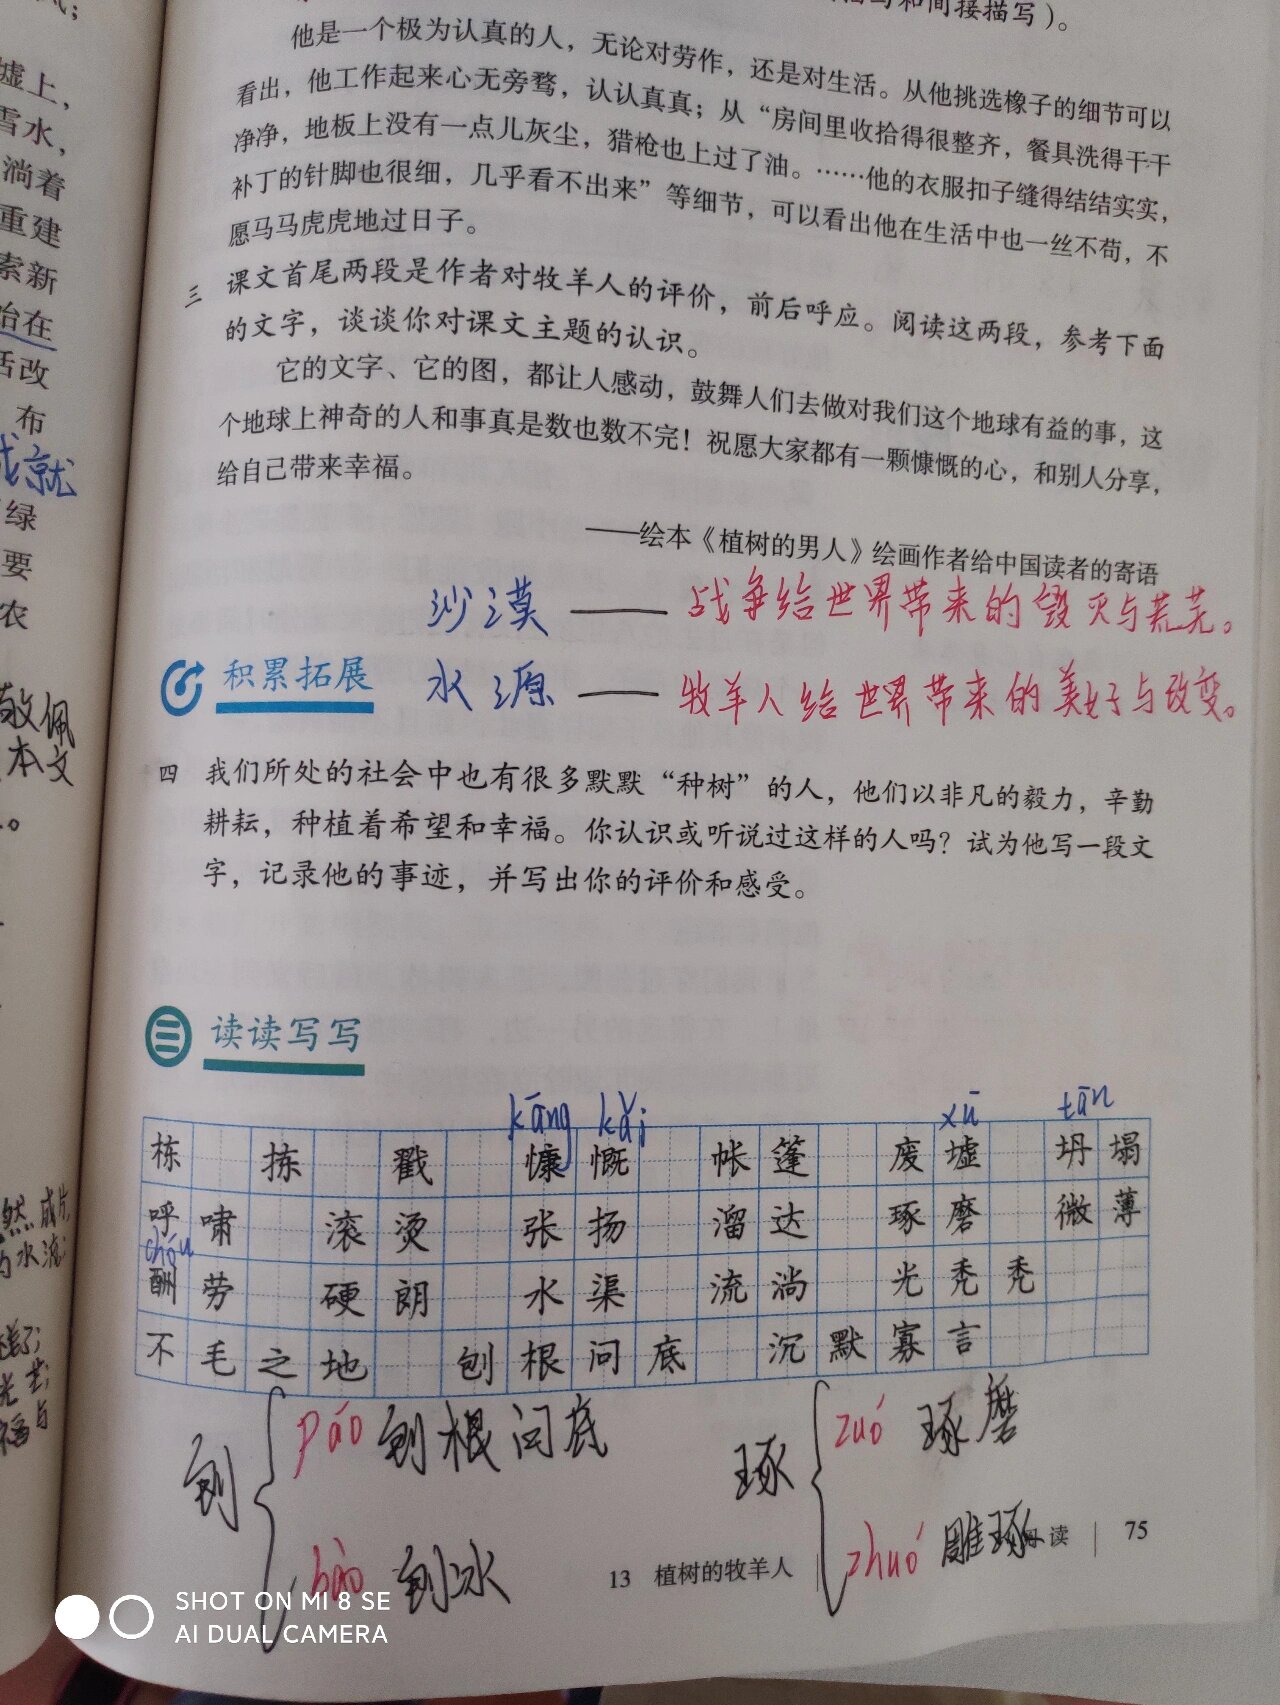 虚上，
雪水，
淌着
重建
索新
台在
活改
布
成就
绿
要
农
敬佩
本文
描写和间接描写）。
他是一个极为认真的人，无论对劳作，还是对生活。从他挑选橡子的细节可以
看出，他工作起来心无旁骛，认认真真；从“房间里收拾得很整齐，餐具洗得干干
净净，地板上没有一点儿灰尘，猎枪也上过了油。……他的衣服扣子缝得结结实实，
补丁的针脚也很细，几乎看不出来”等细节，可以看出他在生活中也一丝不苟，不
愿马马虎虎地过日子。
三 课文首尾两段是作者对牧羊人的评价，前后呼应。阅读这两段，参考下面
的文字，谈谈你对课文主题的认识。
它的文字、它的图，都让人感动，鼓舞人们去做对我们这个地球有益的事，这
个地球上神奇的人和事真是数也数不完！祝愿大家都有一颗慷慨的心，和别人分享，
给自己带来幸福。
——绘本《植树的男人》绘画作者给中国读者的寄语
沙漠——战争给世界带来的毁灭与荒芜。
积累拓展
水源——牧羊人给世界带来的美好与改变。
四 我们所处的社会中也有很多默默“种树”的人，他们以非凡的毅力，辛勤
耕耘，种植着希望和幸福。你认识或听说过这样的人吗？试为他写一段文
字，记录他的事迹，并写出你的评价和感受。
读读写写
kāng kǎi xū tān
栋 拣 戳 慷慨 帐篷 废墟 坍塌
呼啸 滚烫 张扬 溜达 琢磨 微薄
chóu
酬劳 硬朗 水渠 流淌 光秃秃
不毛之地 刨根问底 沉默寡言
刨 páo 刨根问底
bào 刨冰
琢 zuó 琢磨
zhuó 雕琢
13 植树的牧羊人 读 75
SHOT ON MI 8 SE
AI DUAL CAMERA